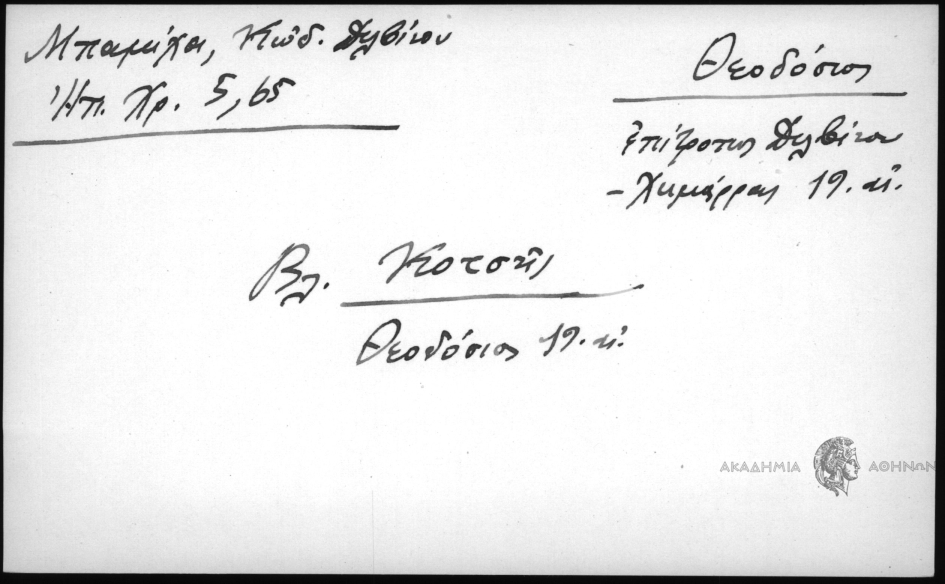 Μπαμίχα, Κώδ. Δελβίνου
Ἠπ. Χρ. 5, 65
Θεοδόσιος
ἐπίτροπος Δελβίνου
– Χιμάρρας 19. αἰ.
Βλ. Κοτσῆς
Θεοδόσιος 19. αἰ.
ΑΚΑΔΗΜΙΑ ΑΘΗΝΩΝ